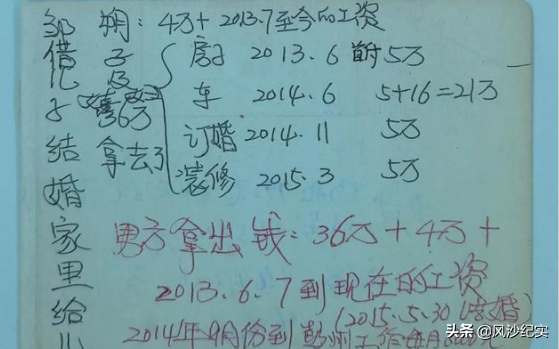 邹朔:4万+2013.7至今的工资
借儿子结婚家里给
房子 2013.6 首付 5万
车 2014.6 5+16=21万
订婚 2014.11 5万
装修 2015.3 5万
36万
拿去了
男方拿出钱:36万+4万+
2013.6.7到现在的工资
(2015.5.30结婚)
2014年9月份到彭州工作每月
头条 @风沙纪实